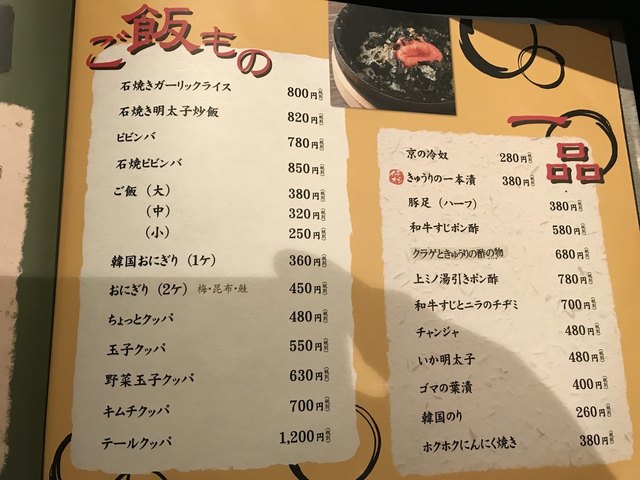 ご飯もの
石焼きガーリックライス 800円(税別)
石焼き明太子炒飯 820円(税別)
ビビンバ 780円(税別)
石焼ビビンバ 850円(税別)
ご飯(大) 380円(税別)
(中) 320円(税別)
(小) 250円(税別)
韓国おにぎり(1ケ) 360円(税別)
おにぎり(2ケ) 梅・昆布・鮭 450円(税別)
ちょっとクッパ 480円(税別)
玉子クッパ 550円(税別)
野菜玉子クッパ 630円(税別)
キムチクッパ 700円(税別)
テールクッパ 1,200円(税別)
一品
京の冷奴 280円(税別)
きゅうりの一本漬 380円(税別)
豚足(ハーフ) 380円(税別)
和牛すじポン酢 580円(税別)
クラゲときゅうりの酢の物 680円(税別)
上ミノ湯引きポン酢 780円(税別)
和牛すじとニラのチヂミ 700円(税別)
チャンジャ 480円(税別)
いか明太子 480円(税別)
ゴマの葉漬 400円(税別)
韓国のり 260円(税別)
ホクホクにんにく焼き 380円(税別)